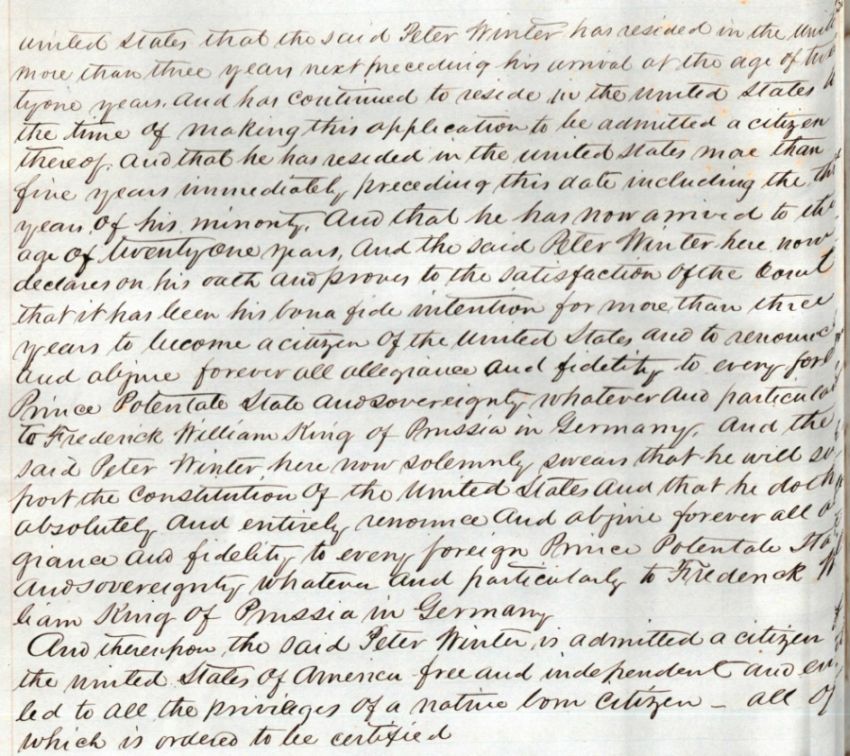 united states that the said Peter Winter has resided in the Unite
more than three years next preceding his arrival at the age of twe
tyone years. And has continued to reside in the united states
the time of making this application to be admitted a citizen
thereof. And that he has resided in the united states more than
five years immediately preceding this date including the th
years of his minority. And that he has now arrived to the
age of twenty one years, And the said Peter Winter here now
declares on his oath and proves to the satisfaction of the Court
that it has been his bona fide intention for more than three
years to become a citizen of the United States and to renounce
and abjure forever all allegiance and fidelity to every for
Prince Potentate State and sovereignty whatever and particula
to Frederick William King of Prussia in Germany. And the
said Peter Winter here now solemnly swears that he will su
port the constitution of the United States and that he doth
absolutely and entirely renounce and abjure forever all a
giance and fidelity to every foreign Prince Potentate Sta
and sovereignty whatever and particularly to Frederick W
liam King of Prussia in Germany
And thereupon the said Peter Winter is admitted a citizen
the united States of America free and independent and en
led to all the privileges of a native born citizen - all of
which is ordered to be certified